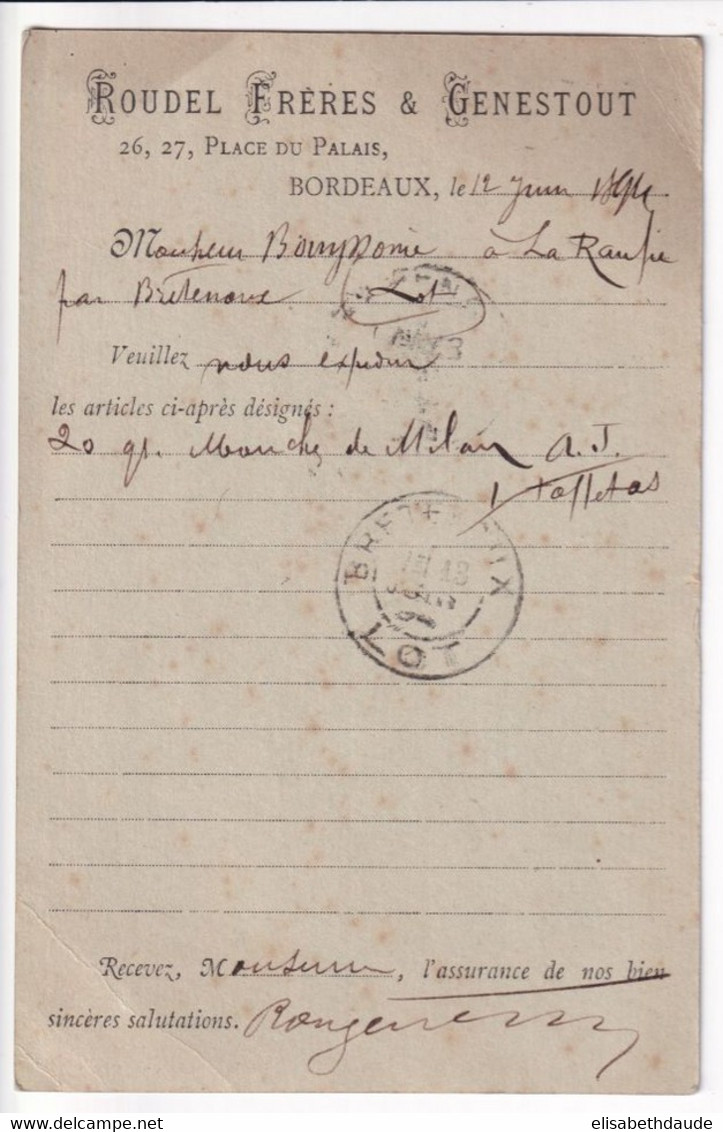 ROUDEL FRÈRES & GENESTOUT
26, 27, PLACE DU PALAIS,
BORDEAUX, le 12 Juin 1894
Monsieur à La
par Bretenoux (Lot)
Veuillez nous expédier
les articles ci-après désignés :
20 gr. Mouches de Milan A. J.
1 taffetas
BRETENOUX
LOT
Recevez, Monsieur, l'assurance de nos bien
sincères salutations.
elisabethdaude